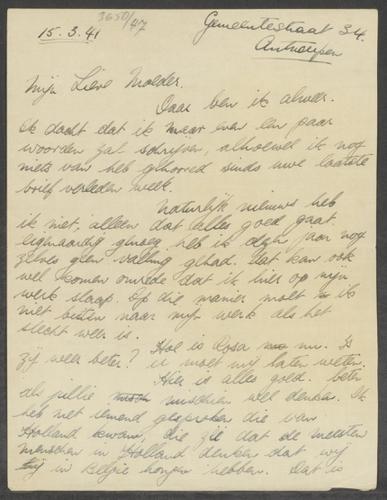 3650/47
Gemeentestraat 34.
15.3.41
Antwerpen
Mijn Lieve Moeder.
Daar ben ik alweer.
Ik dacht dat ik maar even een paar
woorden zal schrijven, alhoewel ik nog
niets van heb gehoord sinds uwe laatste
brief verleden week.
Natuurlijk nieuws heb
ik niet, alleen dat alles goed gaat.
eigenaardig genoeg heb ik dezen jaar nog
zelves geen valling gehad. Dat kan ook
wel komen omrede dat ik hier op mijn
werk slaap. op die manier moet ik
niet buiten naar mijn werk als het
slecht weer is.
Hoe is Rosa nu. Is
zij weer beter? u moet mij laten weten.
Hier is alles goed. beter
als jullie misschien wel denken. Ik
heb net iemand gesproken die van
Holland kwam, die zie dat de meesten
menschen in Holland denken dat wij
in Belgie honger hebben. Dat is